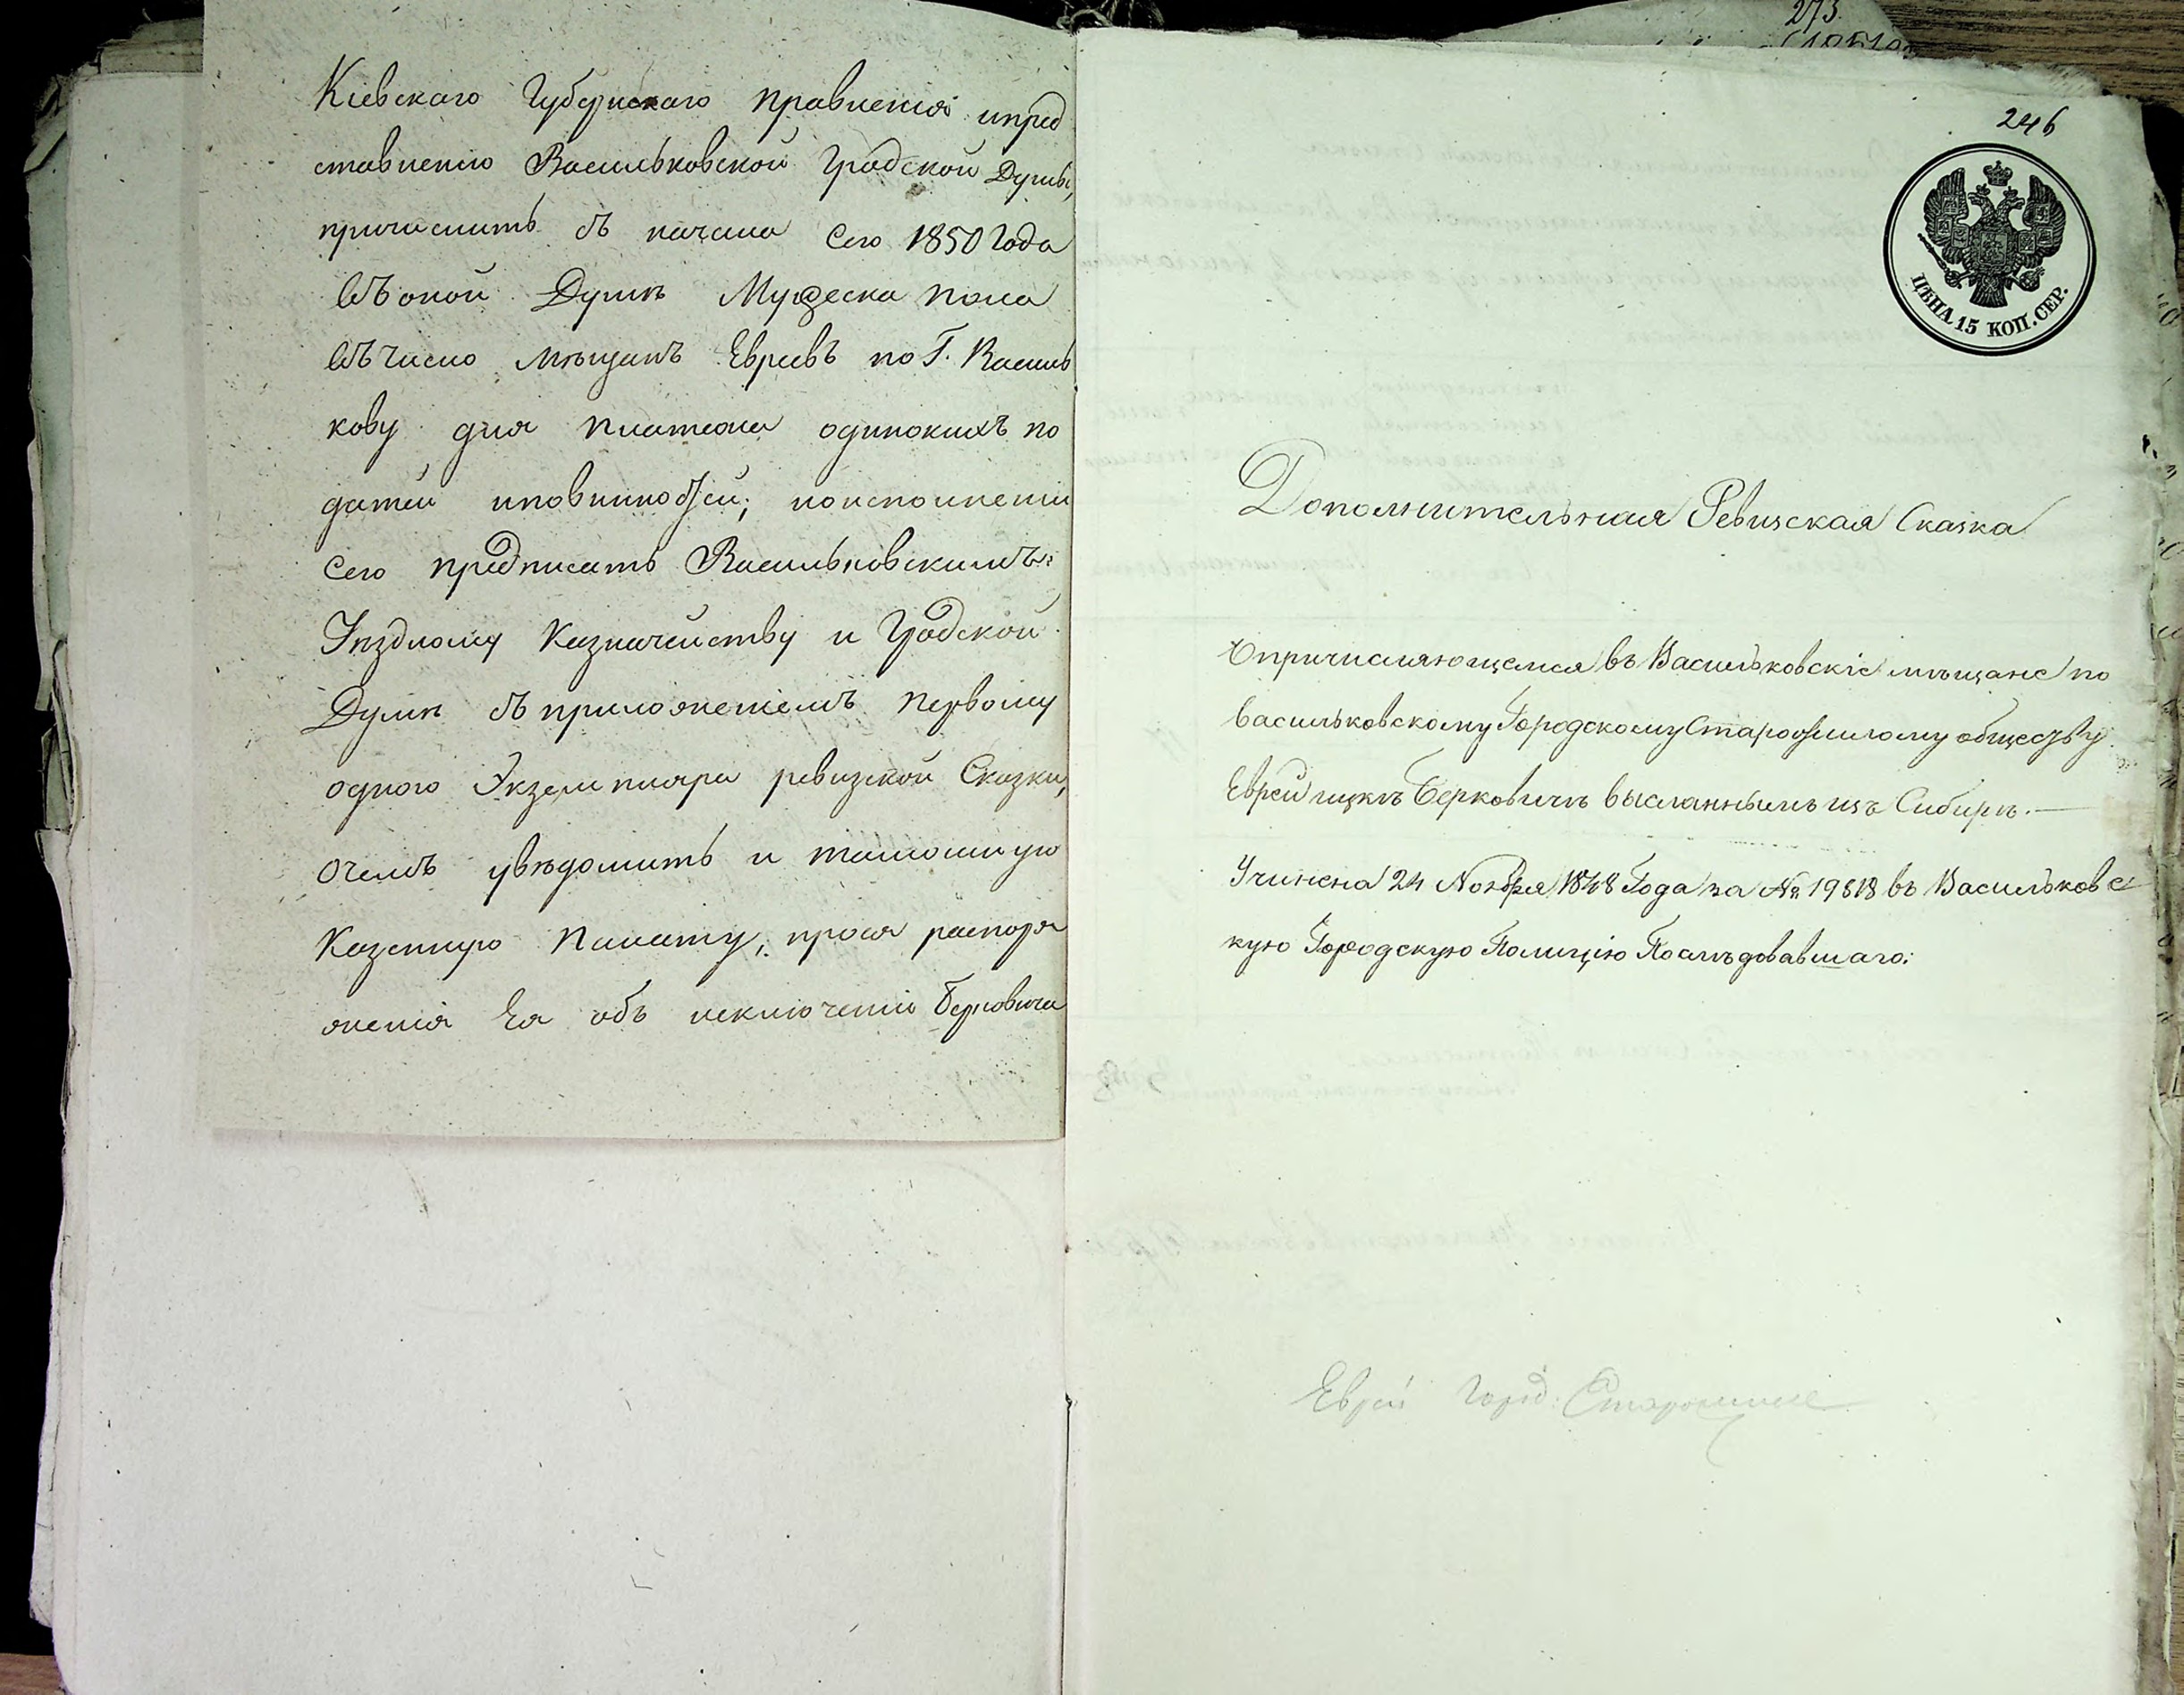 Кіевскаго Губернскаго правленія ипред
ставленію Васильковской Градской Думы,
причислить съ начала сего 1850 года
въ оной Думѣ Мужеска пола
въ число мѣщанъ Евреевъ по Г. Василь
кову для платежа одинокихъ по
датей иповинностей; поисполненіи
сего предписать Васильковскимъ:
Уѣздному Казначейству и Градской
Думѣ съ приложеніемъ первому
одного Экземпляра ревизской Сказки,
очемъ увѣдомить и тамошнюю
Казенную Палату, прося распоря
женія Ея объ исключеніи Берковича
273
246
ЦѢНА 15 КОП. СЕР.
Дополнительная Ревизская Сказка
Опричисляющемся въ Васильковскіе мѣщане по
Васильковскому Городскому Старожилому обществу
Еврей ицкѣ Берковичѣ высланнымъ изъ Сибирѣ.—
Учинена 24 Ноября 1848 Года за № 19818 въ Васильковс
кую Городскую Полицію Послѣдовавшаго.
Еврей Город.